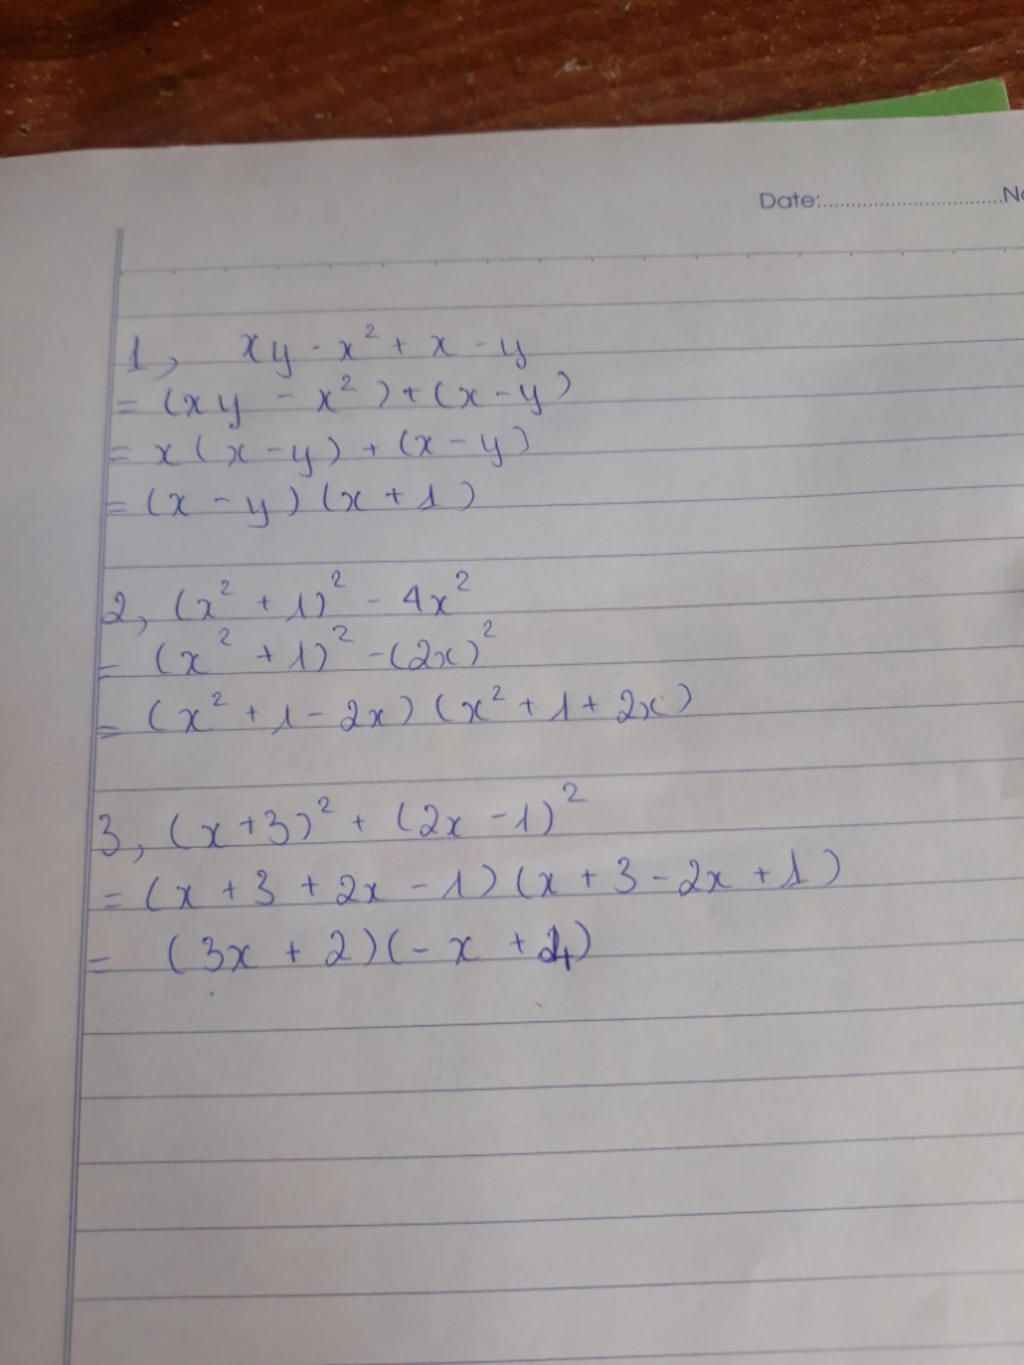 Date:..............................No
1, xy - x² + x - y
= (xy - x²) + (x - y)
= x(x - y) + (x - y)
= (x - y)(x + 1)
2, (x² + 1)² - 4x²
= (x² + 1)² - (2x)²
= (x² + 1 - 2x)(x² + 1 + 2x)
3, (x + 3)² + (2x - 1)²
= (x + 3 + 2x - 1)(x + 3 - 2x + 1)
= (3x + 2)(-x + 4)